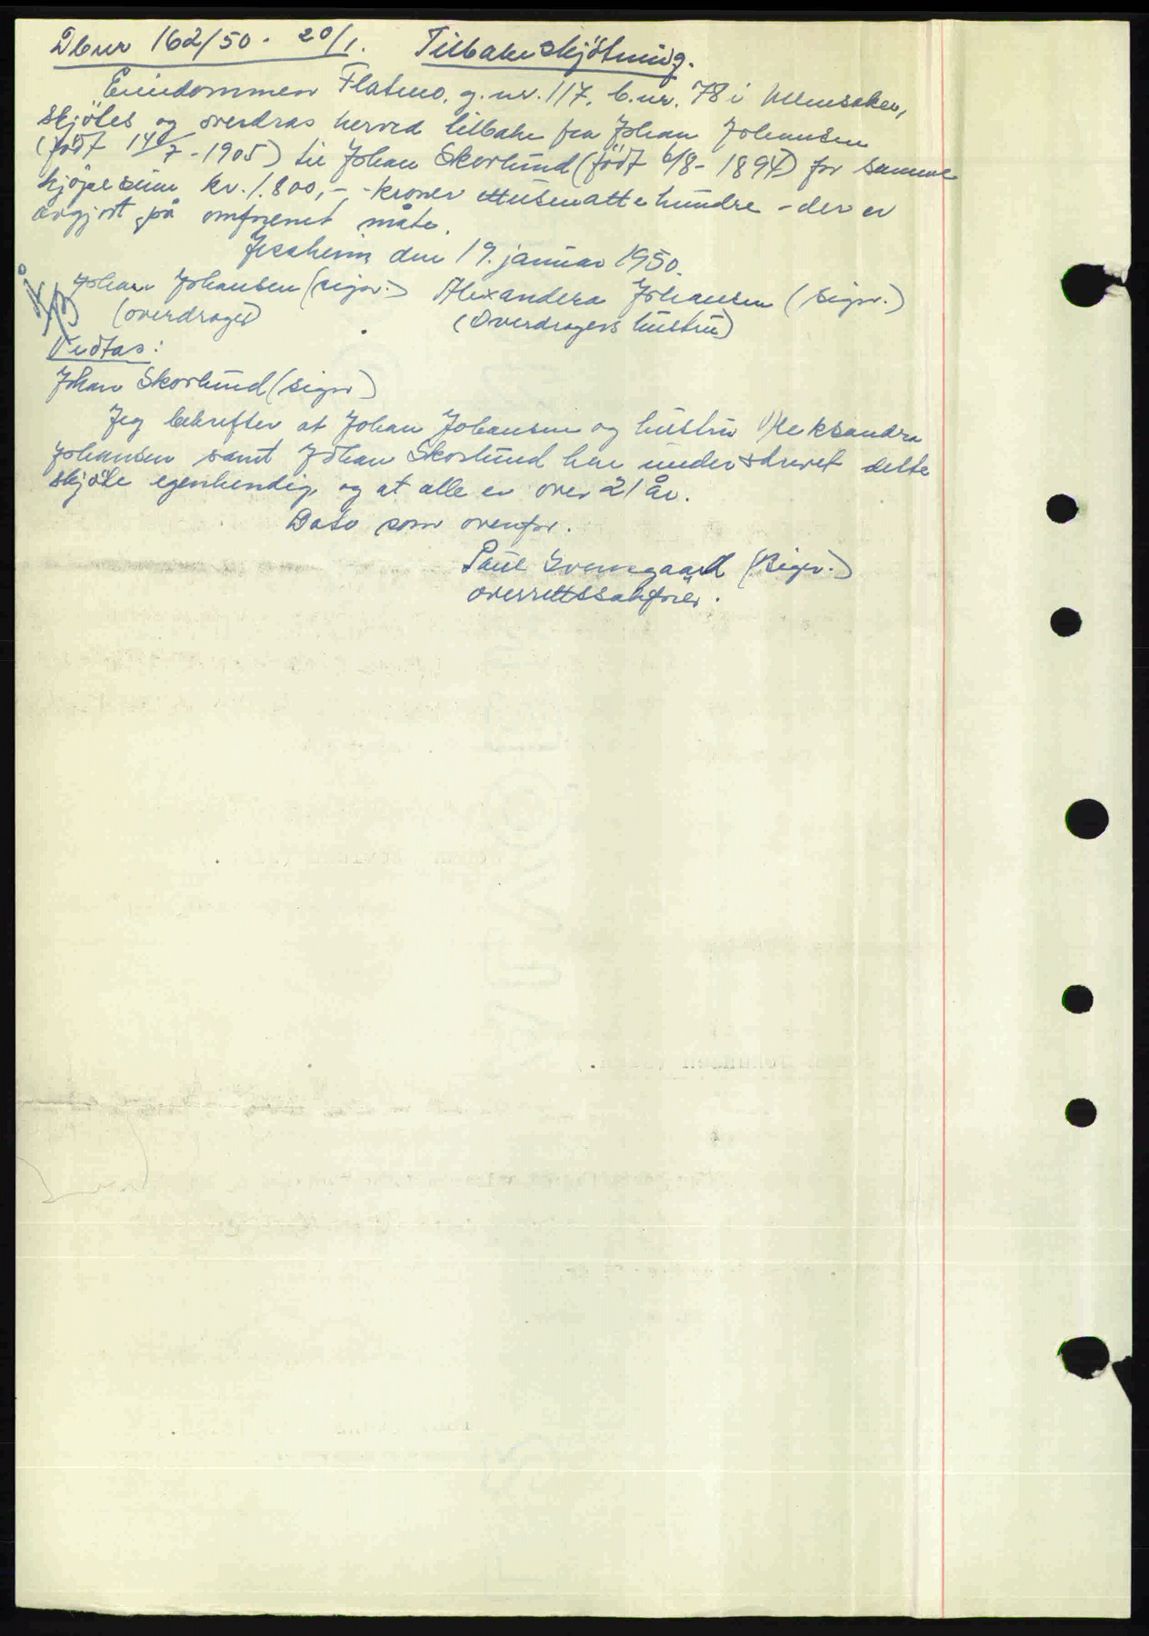 Dbnr 162/50 - 20/1. Tilbakeskjötning.
Eiendommen Flatmo, g.nr. 117, b.nr. 78 i Ullensaker,
skjötes og overdras herved tilbake fra Johan Johansen
(födt 14/7 - 1905) til Johan Skorlund (födt 6/8 - 1894) for samme
kjöpesum kr. 1.800,- - kroner ettusenattehundre - der er
avgjort på omforenet måte.
Jessheim den 19. januar 1950.
Johan Johansen (sign.) Alexandra Johansen (sign.)
(overdrager) (Overdragers hustru)
Vedtas:
Johan Skorlund (sign)
Jeg bekrefter at Johan Johansen og hustru Aleksandra
Johansen samt Johan Skorlund har underskrevet dette
skjöte egenhendig og at alle er over 21 år.
Dato som ovenfor.
Paul (sign.)
overrettssakförer.